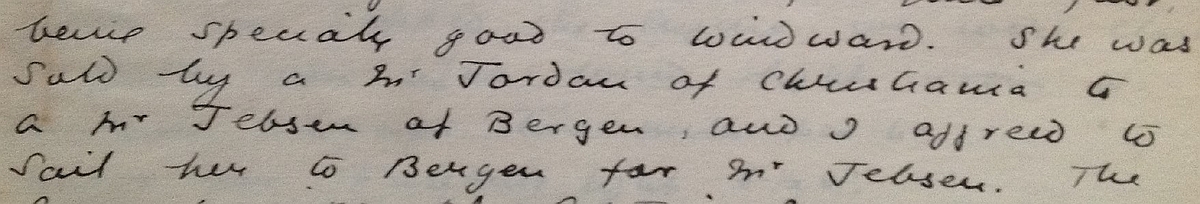 being specialy good to windward. She was
sold by a Mr Jordan of Christiania to
a Mr Jebsen of Bergen, and I agreed to
sail her to Bergen for Mr Jebsen. The